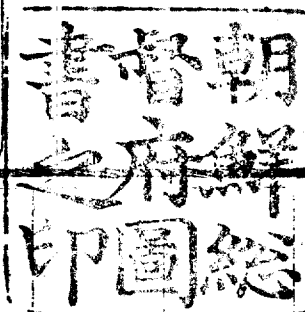 朝鮮總
督府圖
書之印